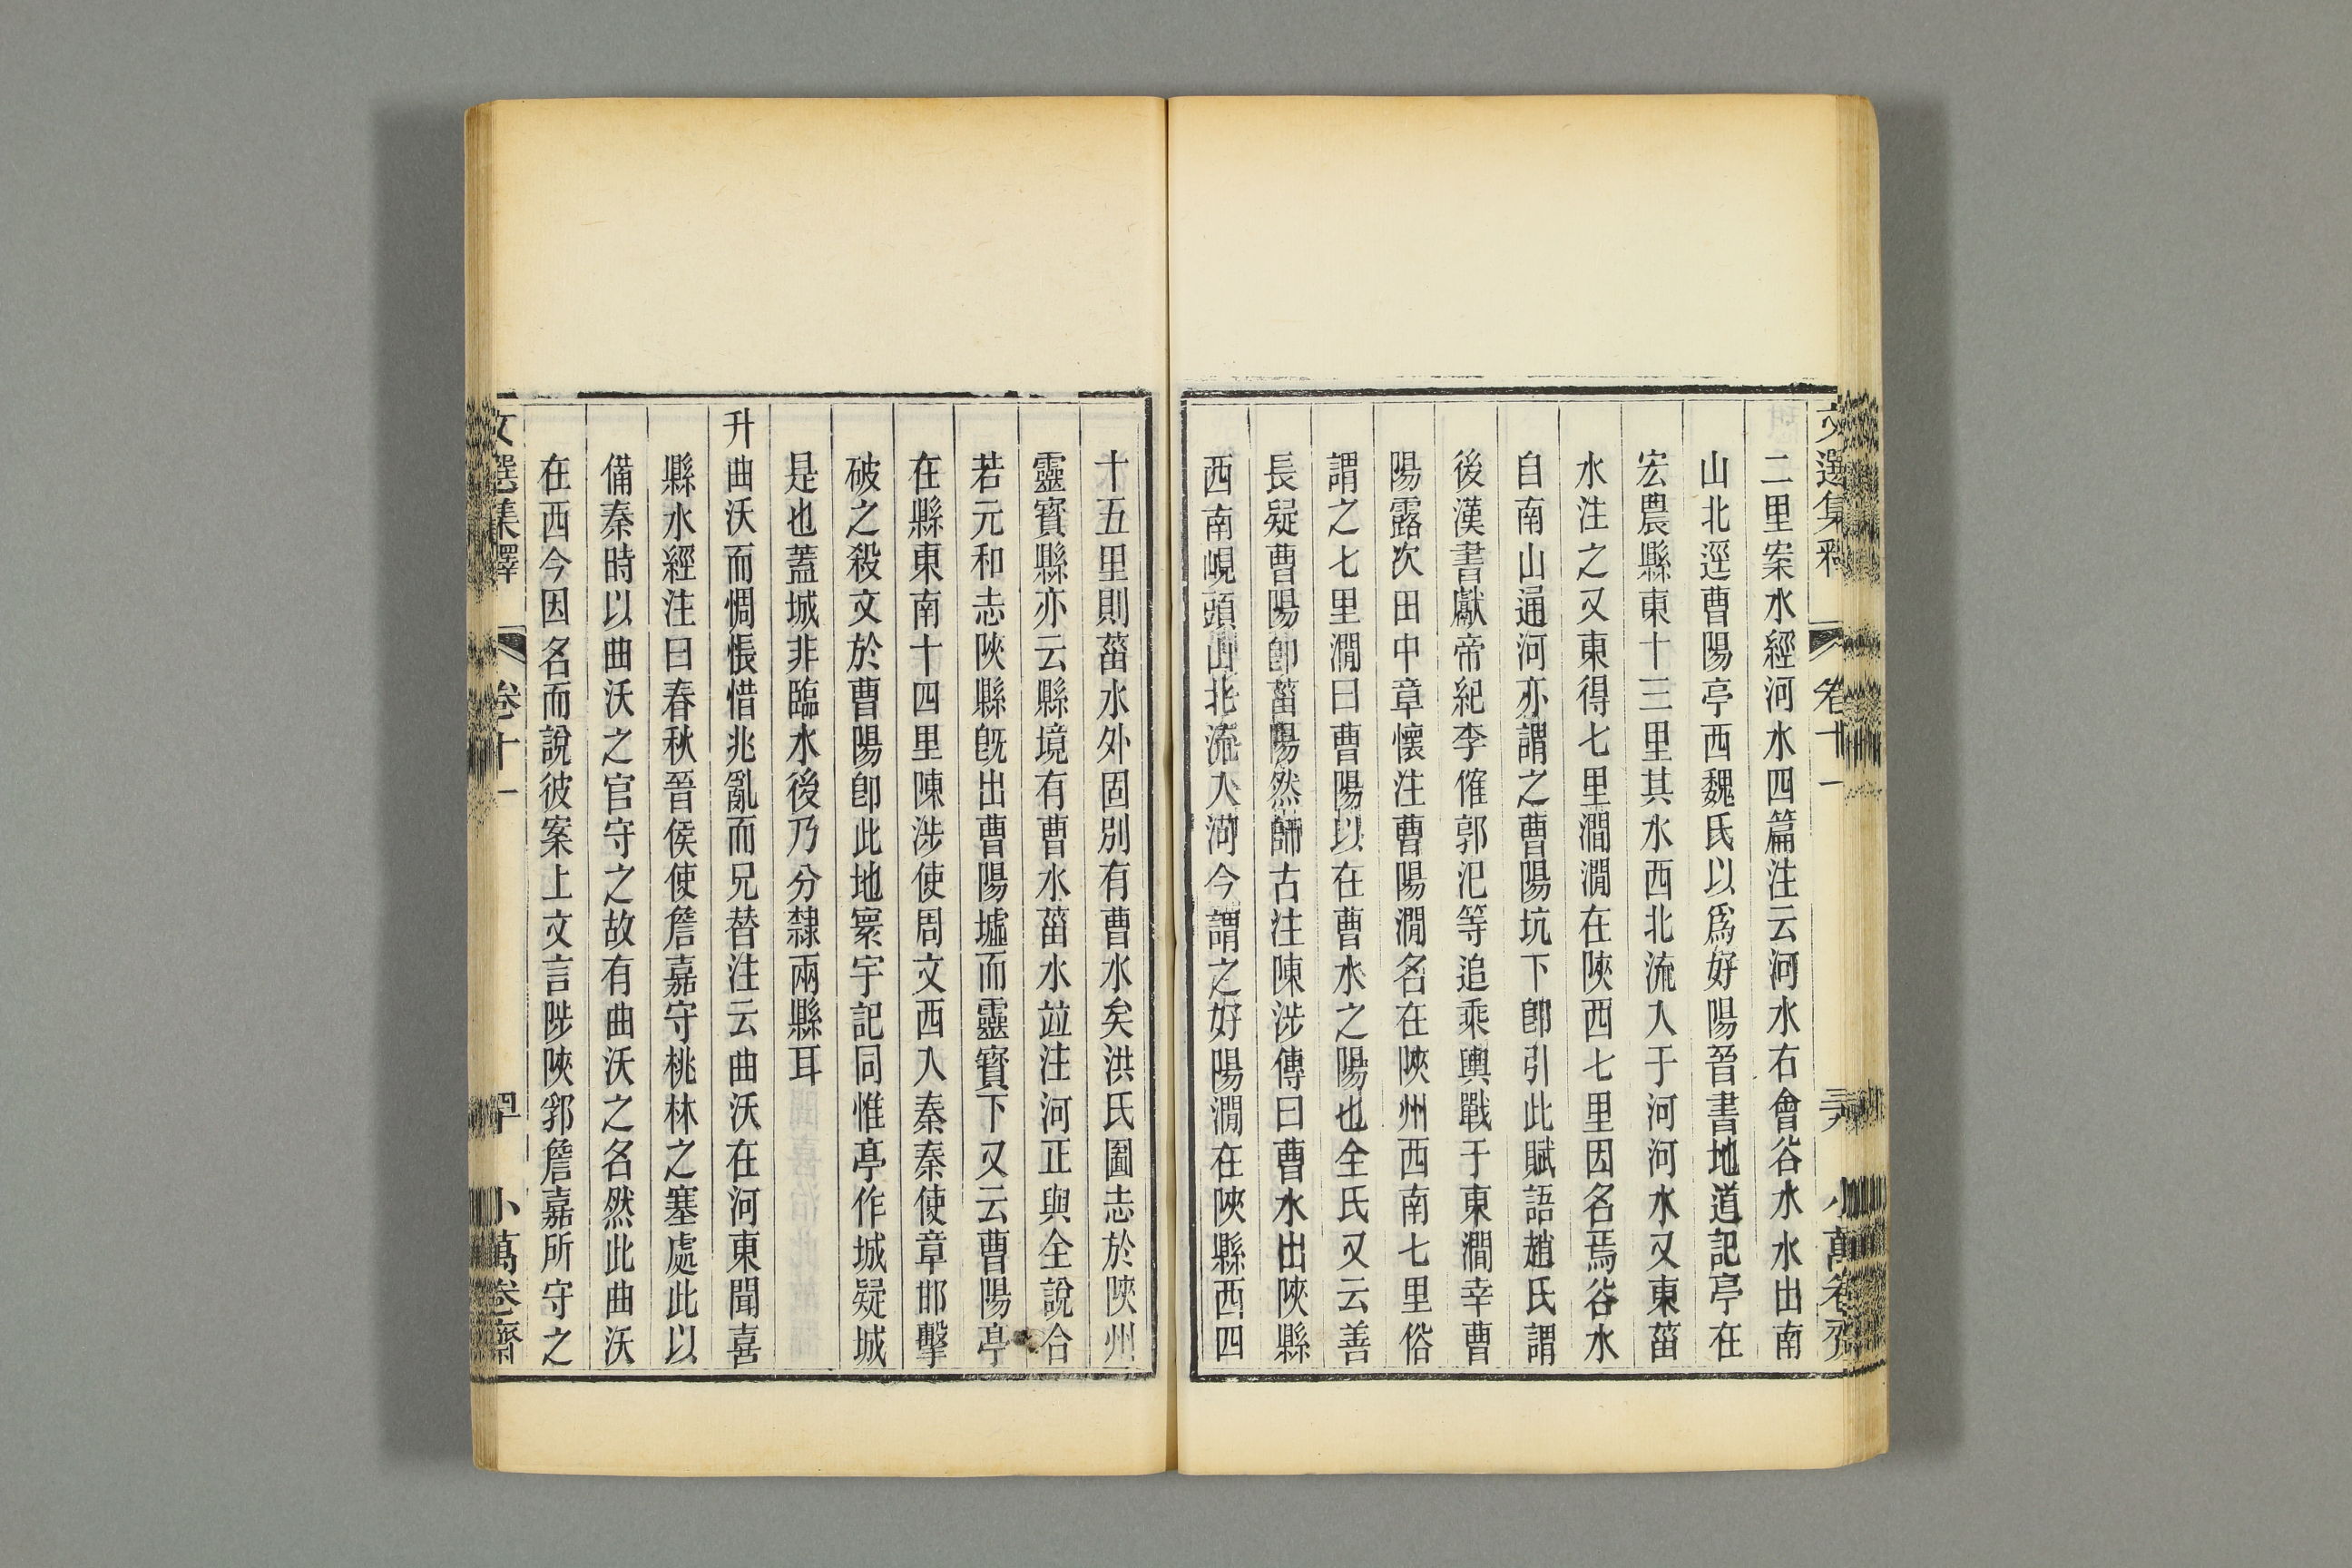 文選集釋 卷十一 小萬卷齋
二里案水經河水四篇注云河水右會谷水水出南
山北逕曹陽亭西魏氏以爲好陽晉書地道記亭在
宏農縣東十三里其水西北流入于河河水又東菑
水注之又東得七里澗澗在陝西七里因名焉谷水
自南山通河亦謂之曹陽坑下卽引此賦語趙氏謂
後漢書獻帝紀李傕郭汜等追乘輿戰于東澗幸曹
陽露次田中章懷注曹陽澗名在陝州西南七里俗
謂之七里澗曰曹陽以在曹水之陽也全氏又云善
長疑曹陽卽菑陽然師古注陳涉傳曰曹水出陝縣
西南峴頭山北流入河今謂之好陽澗在陝縣西四
十五里則菑水外固別有曹水矣洪氏圖志於陝州
靈寳縣亦云縣境有曹水菑水竝注河正與全說合
若元和志陝縣旣出曹陽墟而靈寳下又云曹陽亭
在縣東南十四里陳涉使周文西入秦秦使章邯擊
破之殺文於曹陽卽此地寰宇記同惟亭作城疑城
是也蓋城非臨水後乃分隸兩縣耳
升曲沃而惆悵惜兆亂而兄替注云曲沃在河東聞喜
縣水經注曰春秋晉侯使詹嘉守桃林之塞處此以
備秦時以曲沃之官守之故有曲沃之名然此曲沃
在西今因名而說彼案上文言陟陝郛詹嘉所守之
文選集釋 卷十一 小萬卷齋